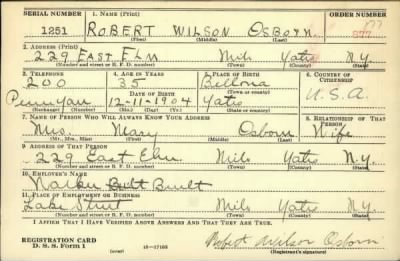 SERIAL NUMBER 1. NAME (Print) ORDER NUMBER
1251 ROBERT WILSON OSBORN
(First) (Middle) (Last)
2. ADDRESS (Print)
229 EAST ELM Milo Yates N.Y.
(Number and street or R. F. D. number) (Town) (County) (State)
3. TELEPHONE 4. AGE IN YEARS 5. PLACE OF BIRTH 6. COUNTRY OF CITIZENSHIP
200 35 Bellona
DATE OF BIRTH (Town or county)
Penn Yan 12-11-1904 Yates U.S.A.
(Exchange) (Number) (Mo.) (Day) (Yr.) (State or country)
7. NAME OF PERSON WHO WILL ALWAYS KNOW YOUR ADDRESS 8. RELATIONSHIP OF THAT PERSON
Mrs. Mary Osborn Wife
(Mr., Mrs., Miss) (First) (Middle) (Last)
9. ADDRESS OF THAT PERSON
229 East Elm Milo Yates N.Y.
(Number and street or R. F. D. number) (Town) (County) (State)
10. EMPLOYER'S NAME
Built
11. PLACE OF EMPLOYMENT OR BUSINESS
Lake Street Milo Yates N.Y.
(Number and street or R. F. D. number) (Town) (County) (State)
I AFFIRM THAT I HAVE VERIFIED ABOVE ANSWERS AND THAT THEY ARE TRUE.
REGISTRATION CARD
D. S. S. Form 1 (over) 16—17105
Robert Wilson Osborn
(Registrant's signature)